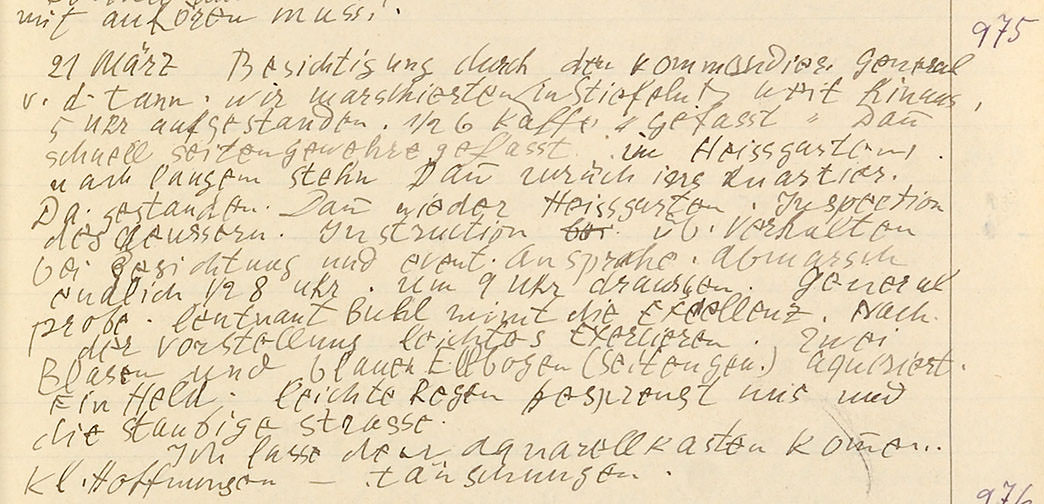 mit anhören muss!
975
21 März Besichtigung durch den kommandier. General
v. d. Tann. wir marschierten (in Stiefeln!) weit hinaus,
5 Uhr aufgestanden. 1/2 6 Kaffe "gefasst" Dan̄
schnell seitengewehre gefasst. im Heissgarten
nach langem stehn Dan̄ zurück ins Quartier.
Da gestanden. Dan̄ wieder Heissgarten. Inspection
des äeussern. Instruction üb. Verhalten
bei Besichtung und event. Ansprache. Abmarsch
endlich 1/2 8 uhr. um 9 uhr draussen. General
probe. leutnant Buhl mimt die Excellenz. Nach
der Vorstellung leichtes Exercieren. Zwei
Blasen und blauen Ellbogen (Seitengew.) aquiriert.
Ein Held. leichte Regen besprengt uns und
die staubige strasse.
Ich lasse den aquarellkasten kom̄en..
Kl. Hoffnungen — täuschungen.
976